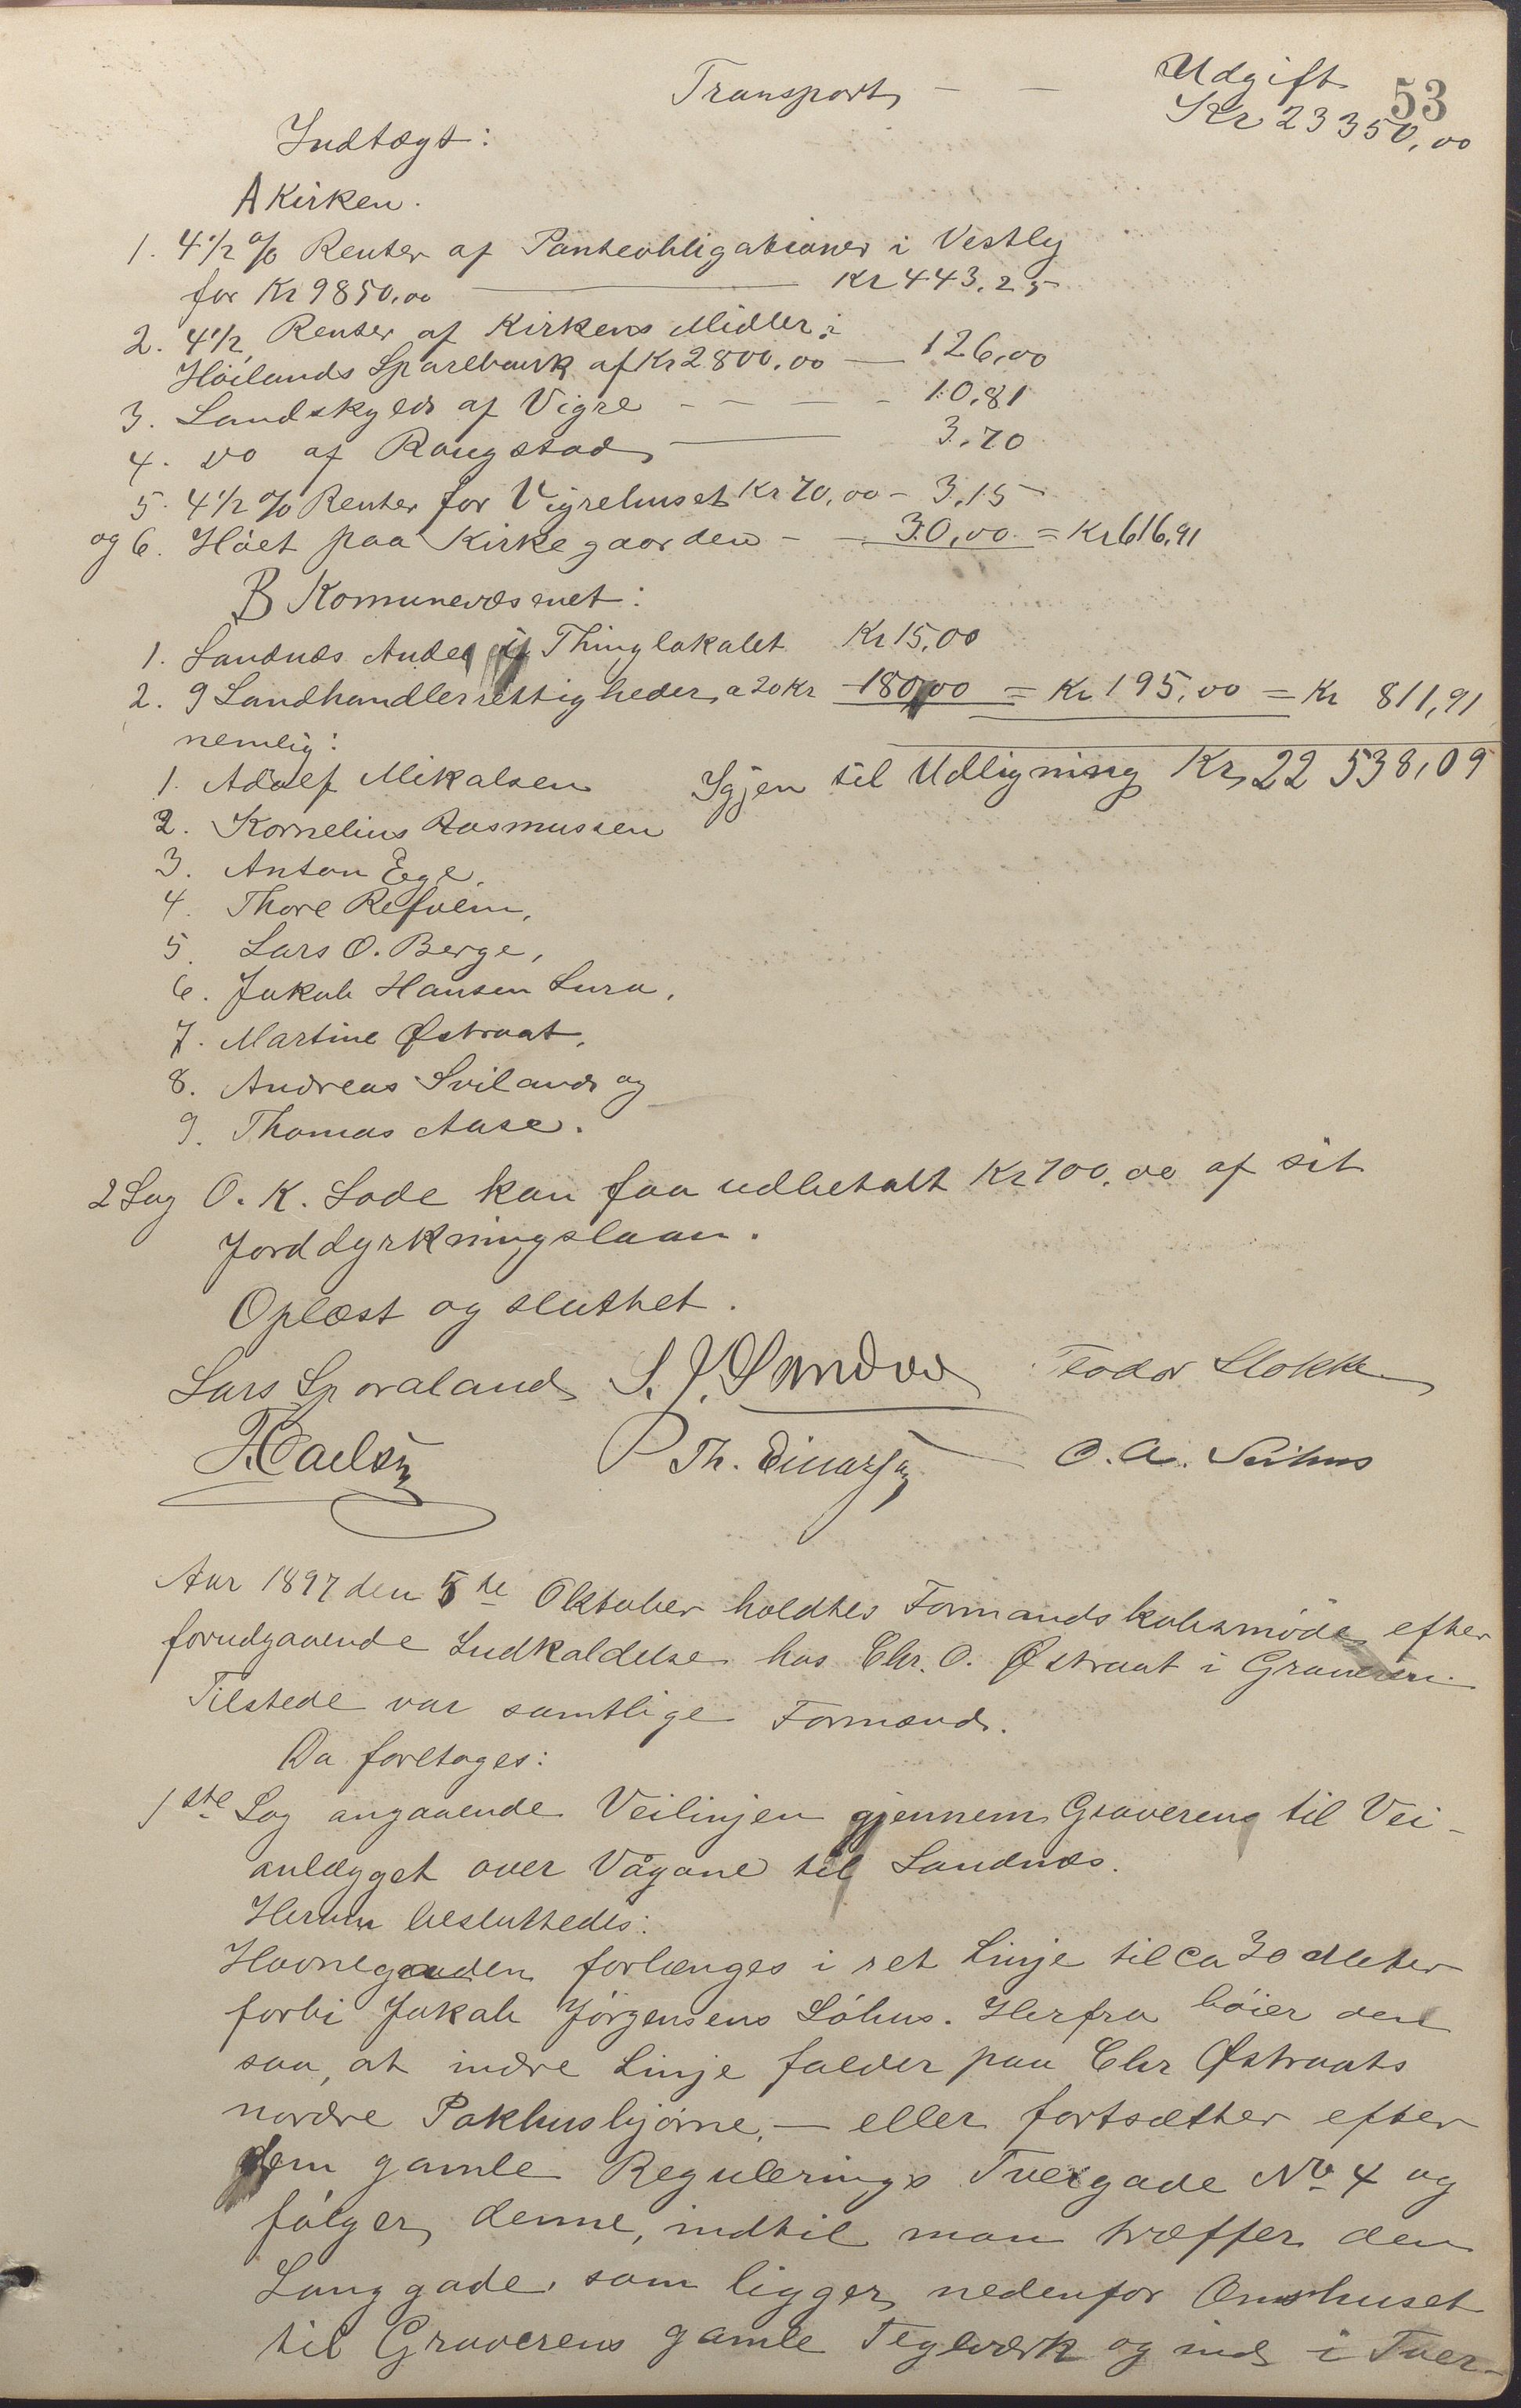 Udgift
53
Transport — — Kr 23 350,00
Indtægt:
A Kirken.
1. 4 1/2 % Renter af Panteobligationer i Vestly
for Kr 9850,00 — Kr 443,25
2. 4 1/2 Renter af Kirkens Midler i
Höilands Sparebank af Kr 2800,00 — 126,00
3. Landskyld af Vigre - - - - 10,81
4. do af Rangstad — 3,70
5. 4 1/2 % Renter for Vigrehuset Kr 70,00 - 3,15
og 6. Höet paa Kirkegaarden - - 30,00 = Kr 616,91
B Komunevæsenet:
1. Sandnæs Andel i Thinglokalet Kr 15,00
2. 9 Landhandlerrettigheder a 20 Kr 180,00 = Kr 195,00 = Kr 811,91
nemlig:
Igjen til Udligning Kr 22 538,09
1. Adolf Mikalsen
2. Kornelius Rasmussen
3. Anton Ege,
4. Thore Refheim,
5. Lars O. Berge,
6. Jakob Hansen Lura,
7. Martine Østraat,
8. Andreas Sviland og
9. Thomas Aase.
2 Sag O. K. Lode kan faa udbetalt Kr 700,00 af sit
Jorddyrkningslaan.
Oplæst og sluttet.
Lars Sporaland S. J. Sandve Teodor Stokke
P Th. Einarsen O. A.
Aar 1897 den 5te Oktober holdtes Formandskabsmöde efter
forudgaaende Indkaldelse hos Chr. O. Østraat i Graveren.
Tilstede var samtlige Formænd.
Da foretoges:
1ste Sag angaaende Veilinjen gjennem Graverens til Vei-
anlægget over Vågane til Sandnæs.
Herom besluttedes:
Havnegaden forlænges i ret Linje til ca 30 Meter
forbi Jakob Jörgensens Söhus. Herfra böier den
saa, at indre Linje falder paa Chr Østraats
nordre Pakhushjörne, — eller fortsætter efter
den gamle Regulerings Tvergade No 4 og
fölger denne, indtil man træffer den
Langgade, som ligger nedenfor Omshuset
til Graverens gamle Teglværk og ind i Tver-